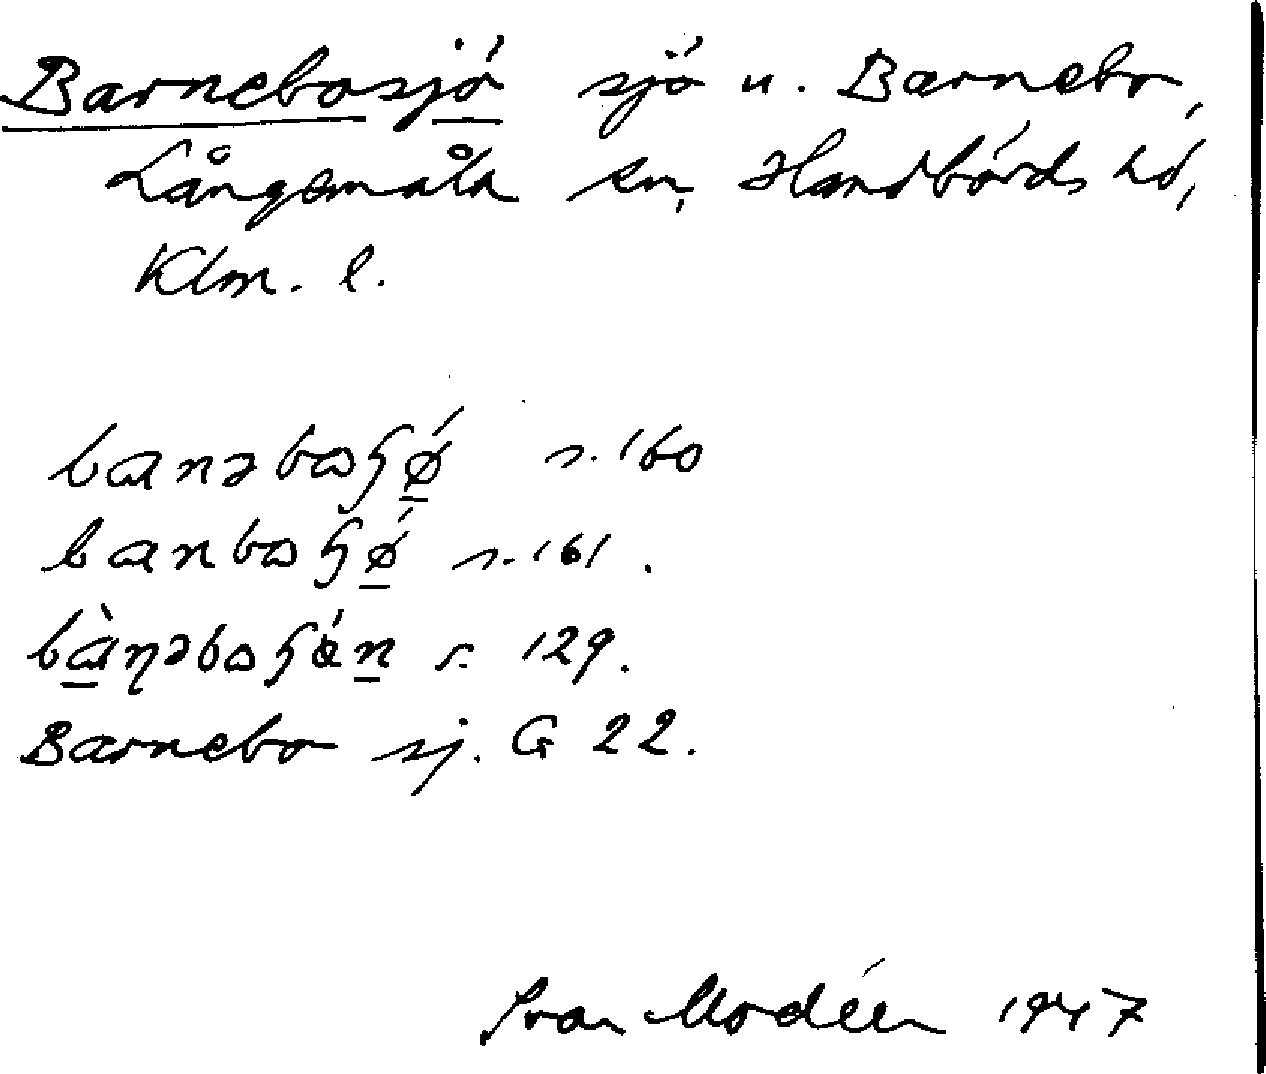 Barnebosjö sjö u. Barnebo,
Långemåla sn, Handbörds hd,
Klm. l.
banəbɷɧǿ s. 160
banbɷɧǿ s. 161.
bàɳəboɧán s. 129.
Barnebo sj. G 22.
Ivan Modéer 1947